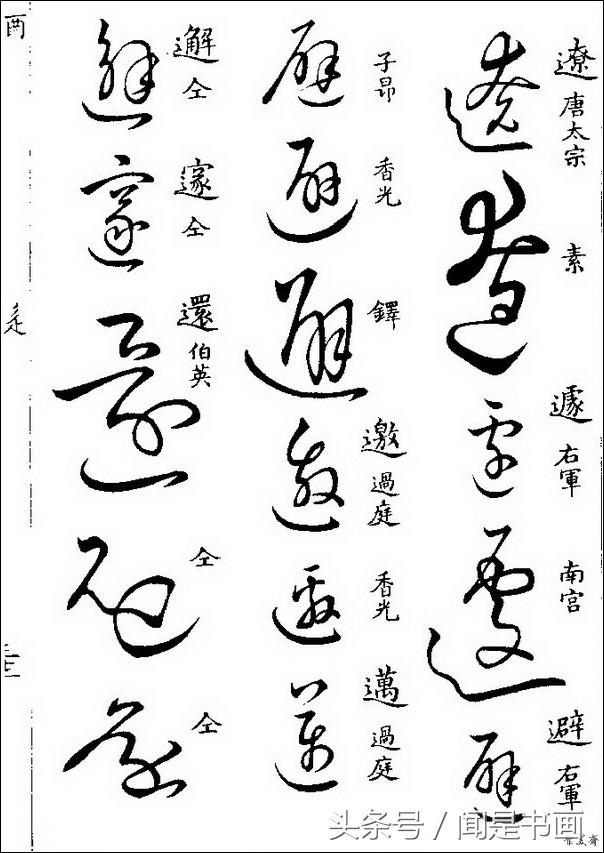 遼 唐太宗
素
遽 右軍
南宮
避 右軍
子昂
香光
鐸
邀 過庭
香光
邁 過庭
邂 仝
邃 仝
還 伯英
仝
仝
酉
辵
头条号 / 闻是书画